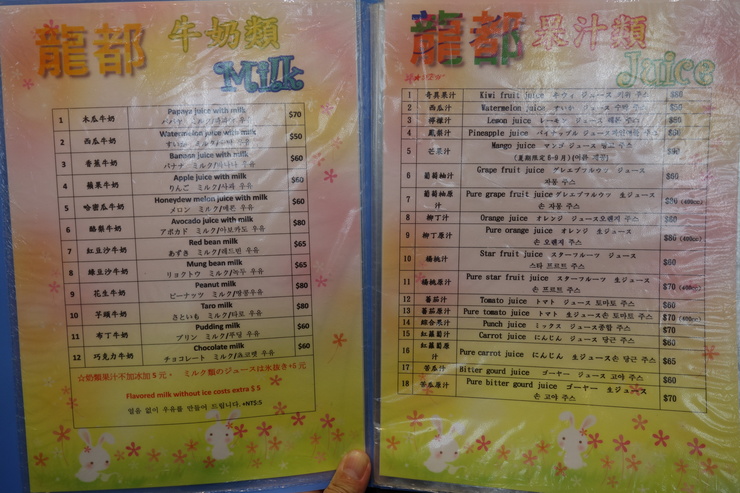 龍都 牛奶類
Milk
1 木瓜牛奶 Papaya juice with milk $70
2 西瓜牛奶 Watermelon juice with milk $50
3 香蕉牛奶 Banana juice with milk $60
バナナ ミルク/바나나 우유
4 蘋果牛奶 Apple juice with milk $60
りんご ミルク/사과 우유
5 哈密瓜牛奶 Honeydew melon juice with milk $60
メロン ミルク/메론 우유
6 酪梨牛奶 Avocado juice with milk $80
アボカド ミルク/아보카도 우유
7 紅豆沙牛奶 Red bean milk $65
あずき ミルク/레드빈 우유
8 綠豆沙牛奶 Mung bean milk $65
リョクトウ ミルク/녹두 우유
9 花生牛奶 Peanut milk $80
ピーナッツ ミルク/땅콩우유
10 芋頭牛奶 Taro milk $80
さといも ミルク/타로 우유
11 布丁牛奶 Pudding milk $60
プリン ミルク/푸딩 우유
12 巧克力牛奶 Chocolate milk $60
チョコレート ミルク/쵸코렛 우유
☆奶類果汁不加冰加5元。 ミルク類のジュースは氷抜き+5元
Flavored milk without ice costs extra $ 5
얼음 없이 우유를 만들어 드립니다. +NT$.5
龍都 果汁類
Juice
1 奇異果汁 Kiwi fruit juice キウィ ジュース 키위 주스 $80
2 西瓜汁 Watermelon juice すいか ジュース 수박 주스
3 檸檬汁 Lemon juice レーモン ジュース 레몬 주스
4 鳳梨汁 Pineapple juice パイナップル ジュース파인애플 주스
5 芒果汁 Mango juice マンゴ ジュース 망고 주스 $90
(夏期限定 6-9月)
6 葡萄柚汁 Grape fruit juice グレエプフルウツ ジュース
자몽 주스
7 葡萄柚原汁 Pure grape fruit juice グレエプフルウツ 生ジュース
손 자몽 주스
8 柳丁汁 Orange juice オレンジ ジュース오렌지 주스 $60
9 柳丁原汁 Pure orange juice オレンジ 生ジュース $80 (400cc)
손 오렌지 주스
10 楊桃汁 Star fruit juice スターフルーツ ジュース $60
스타 프르트 주스
11 楊桃原汁 Pure star fruit juice スターフルーツ 生ジュース $70 (400cc)
손 프르트 주스
12 蕃茄汁 Tomato juice トマト ジュース 토마토 주스 $60
13 蕃茄原汁 Pure tomato juice トマト 生ジュース 손 토마토 주스 $70 (400cc)
14 綜合果汁 Punch juice ミックス ジュース종합 주스 $70
15 紅蘿蔔汁 Carrot juice にんじん ジュース 당근 주스 $60
16 紅蘿蔔原汁 Pure carrot juice にんじん 生ジュース손 당근 주스 $65
17 苦瓜汁 Bitter gourd juice ゴーヤー ジュース 고야 주스 $60
18 苦瓜原汁 Pure bitter gourd juice ゴーヤー 生ジュース $70
손 고야 주스